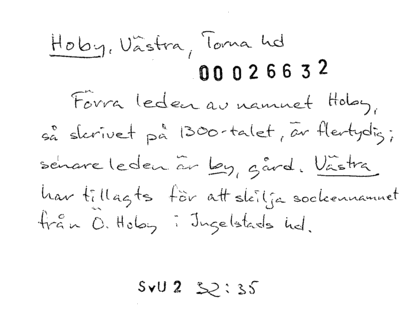 Hoby, Västra, Torna hd
00026632
Förra leden av namnet Hoby,
så skrivet på 1300-talet, är flertydig;
senare leden är by, gård. Västra
har tillagts för att skilja sockennamnet
från Ö. Hoby i Ingelstads hd.
SvU 2 32:35